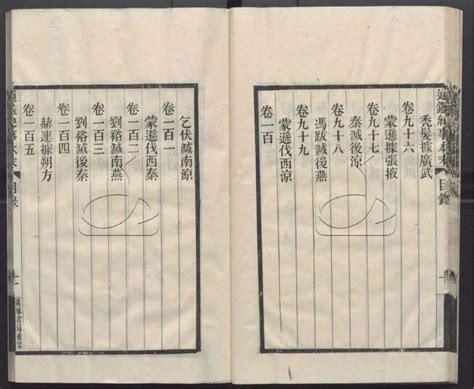 通鑑紀事本末 目錄
禿髮據廣武
卷九十六
蒙遜據張掖
卷九十七
秦滅後涼
卷九十八
馮跋滅後燕
卷九十九
蒙遜伐西涼
卷一百
乞伏滅南涼
卷一百一
蒙遜伐西秦
卷一百二
劉裕滅南燕
卷一百三
劉裕滅後秦
卷一百四
赫連據朔方
卷一百五
目錄